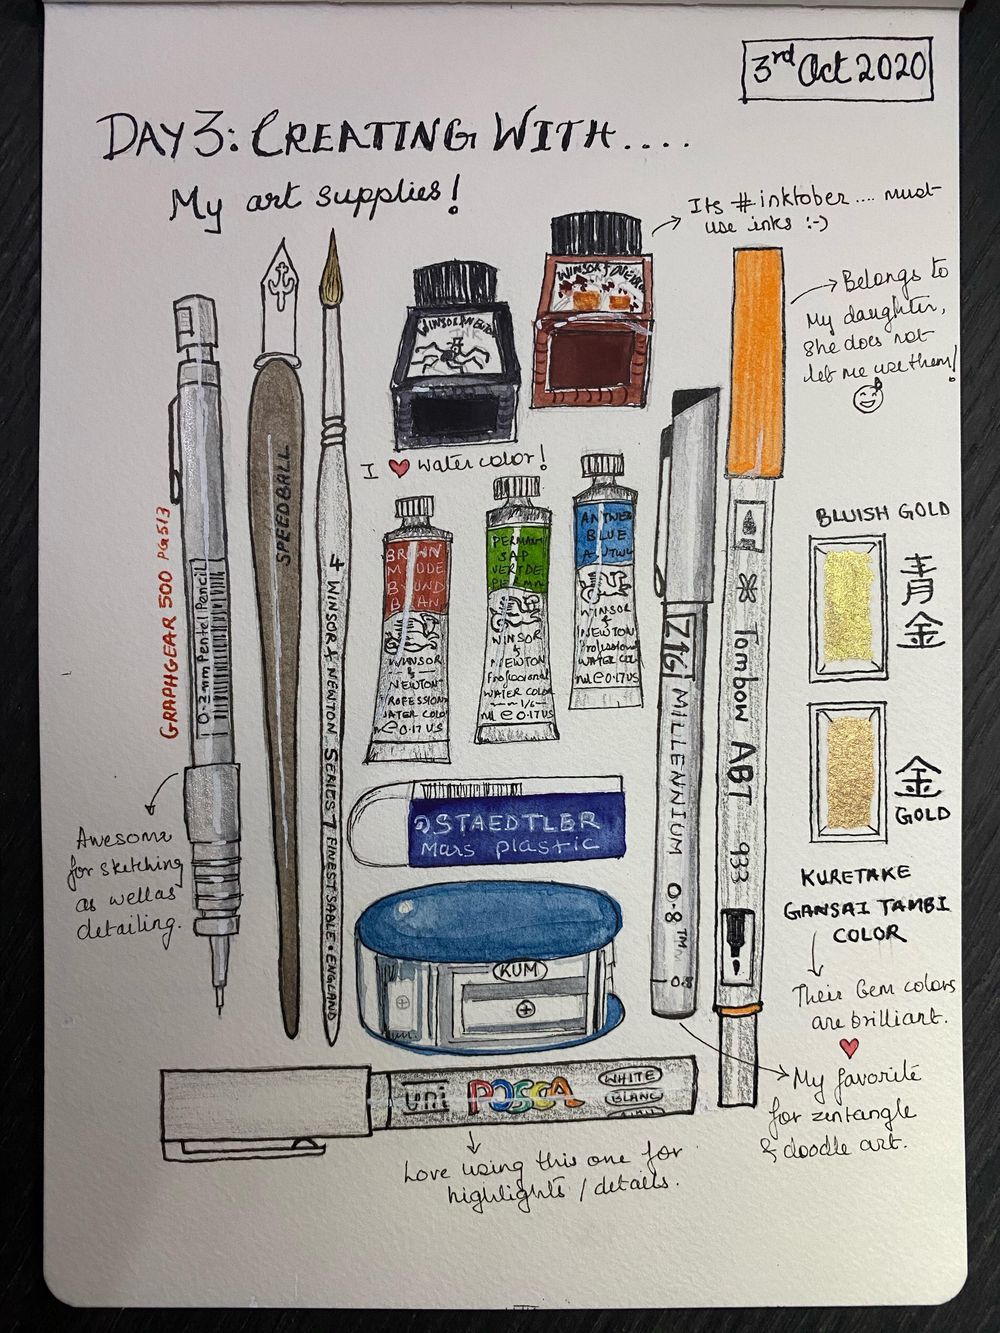 3rd Oct 2020
DAY 3: CREATING WITH....
My art supplies!
Its #inktober.... must
use inks :-)
Belongs to
My daughter,
she does not
let me use them!
WINSOR & NEWTON
INK
WINSOR
INK
I ♥ watercolor!
GRAPHGEAR 500 PG513
0.2mm Pentel Pencil
SPEEDBALL
4 WINSOR & NEWTON SERIES 7 FINEST SABLE • ENGLAND
BROWN
WINSOR
&
NEWTON
PROFESSIONAL
WATER COLO
0.17 US
PERMAN
SAP
VERT DE
WINSOR
&
NEWTON
Professional
WATER COLOR
ml e 0.17 US
ANTWER
BLUE
WINSOR
&
NEWTON
Professional
WATER COL
ml e 0.17 US
ZIG MILLENNIUM 0.8™
0.8
Tombow ABT 933
BLUISH GOLD
青
金
金
GOLD
KURETAKE
GANSAI TAMBI
COLOR
Their Gem colors
are brilliant.
♥
My favorite
for zentangle
& doodle art.
Awesome
for sketching
as well as
detailing.
STAEDTLER
Mars plastic
KUM
uni POSCA
WHITE
BLANC
Love using this one for
highlights / details.